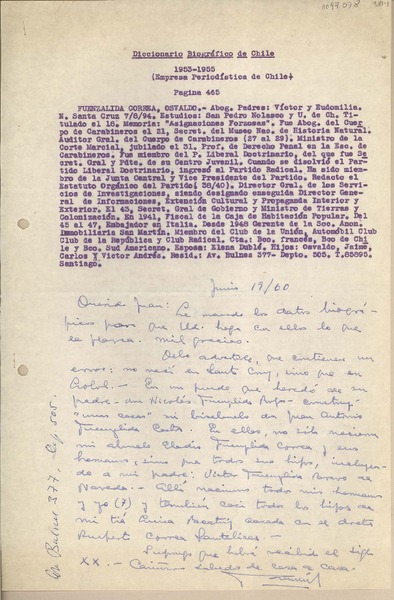 Diccionario Biográfico de Chile
1953-1955
(Empresa Periodística de Chile)
Pagina 465
FUENZALIDA CORREA, OSVALDO.- Abog. Padres: Víctor y Eudomilia.
N. Santa Cruz 7/8/94. Estudios: San Pedro Nolasco y U. de Ch. Ti-
tulado el 18. Memoria: "Asignaciones Forzosas". Fue Abog. del Cuer-
po de Carabineros el 21, Secret. del Museo Nac. de Historia Natural.
Auditor Gral. del Cuerpo de Carabineros (27 al 29). Ministro de la
Corte Marcial, jubilado el 31. Prof. de Derecho Penal en la Esc. de
Carabineros. Fue miembro del P. Liberal Doctrinario, del que fue Se
cret. Gral y Pdte. de su Centro Juvenil. Cuando se disolvió el Par-
tido Liberal Doctrinario, ingresó al Partido Radical. Ha sido miem-
bro de la Junta Central y Vice Presidente del Partido. Redacto el
Estatuto Orgánico del Partido( 38/40). Director Gral. de los Servi-
cios de Investigaciones, siendo designado enseguida Director Gene-
ral de Informaciones, Extención Cultural y Propaganda Interior y
Exterior. El 43, Secret. Gral de Gobierno y Ministro de Tierras y
Colonización. En 1941, Fiscal de la Caja de Habitación Popular. Del
45 al 47, Embajador en Italia. Desde 1948 Gerente de la Soc. Anon.
Inmobiliaria San Martín. Miembro del Club de la Unión, Automóbil Club
Club de la República y Club Radical. Cta.: Bco. francés, Bco de Chi-
le y Bco. Sud Americano. Esposa: Elena Dublé. Hijos: Osvaldo, Jaime,
Carlos Y Victor Andrés. Resid.: Av. Bulnes 377- Depto. 505. T.85890.
Santiago.
Junio 19/60
Querido Juan: Le mando los datos biográ-
ficos para que Ud. haga con ellos lo que
le plazca. Mil gracias.
Debo advertirle, que contienen un
error: no nací en Santa Cruz, sino que en
En un predio que heredó de su
padre- don Nicolás Fuenzalida
casas" mi bisabuelo don Juan Antonio
Fuenzalida En ellas, no sólo nacieron
mi abuelo Fuenzalida Correa y sus
hermanos, sino que todos sus hijos, incluyen-
do a mi padre: Victor Fuenzalida
Allí nacimos todos mis hermanos
y yo (7) y también casi todos los hijos de
mi tía casada con el doctor
Ruperto Correa
Supongo que habrá recibido el siglo
XX.- Cariñosos saludos de casa a casa.
Av Bulnes 377. Dep 505.